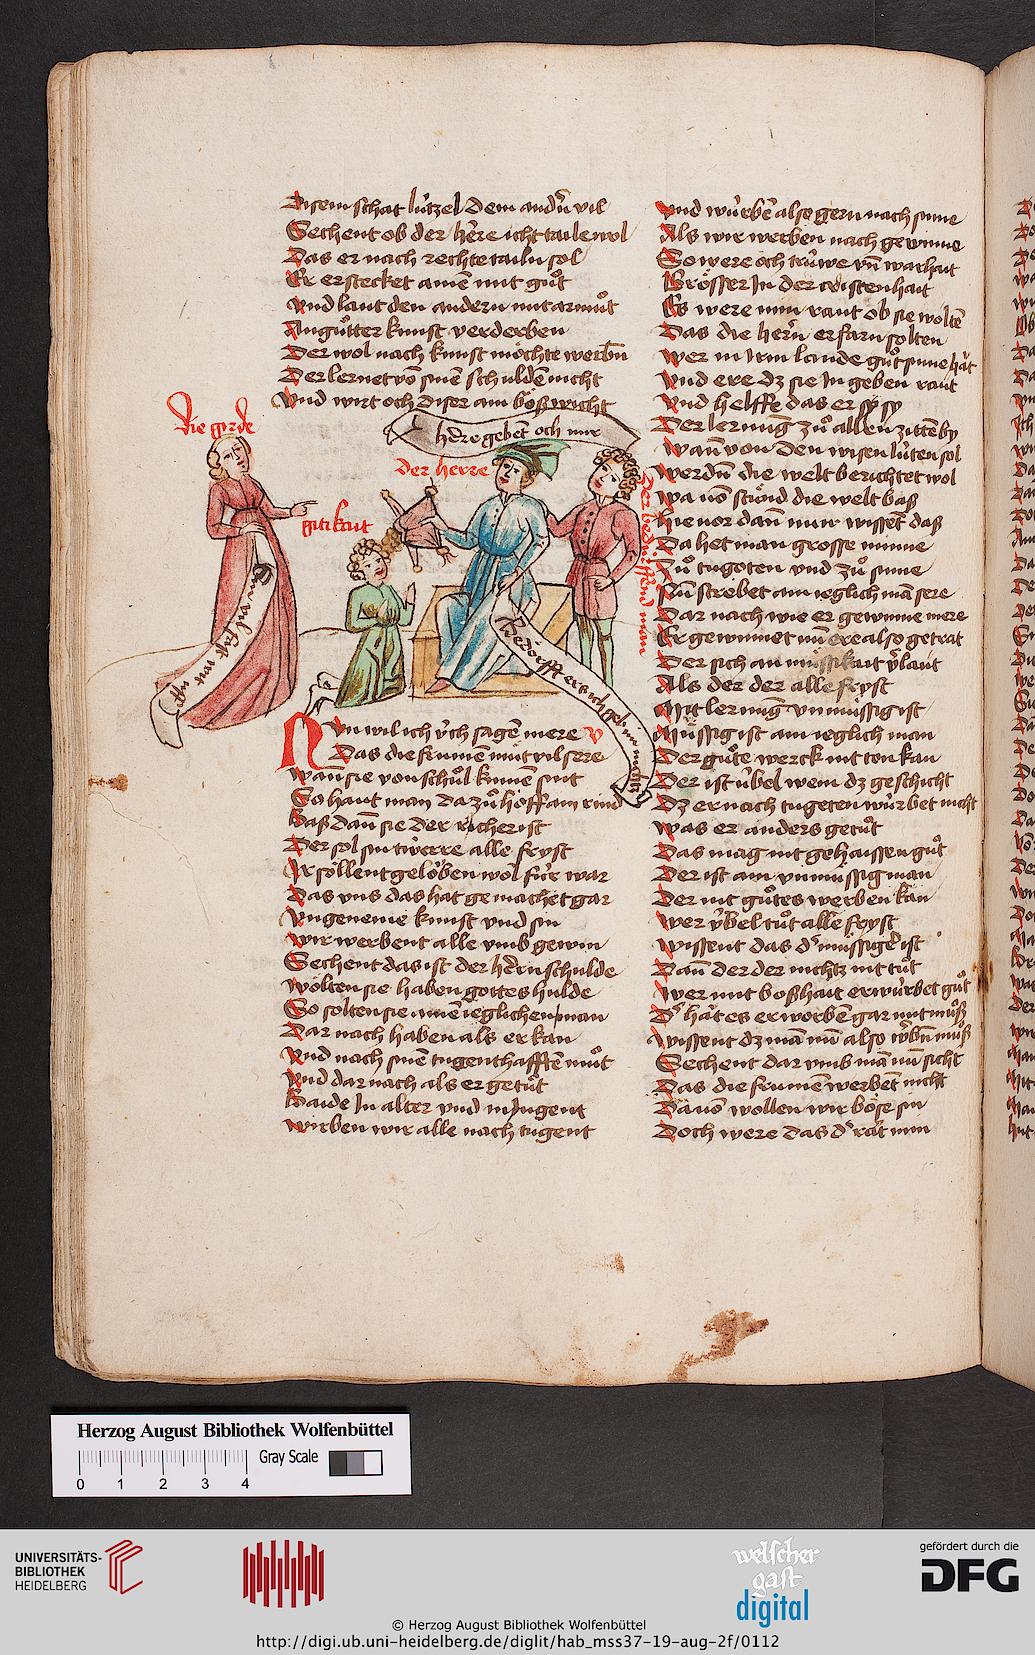 Disem schat lützel dem andn̄ vil
Sechent ob der here icht taile wol
Das er nach rechte tailn sol
Er erstecket ainē mit gůt
Vnd laut den andern mit armůt
An gůtter kunst verderben
Der wol nach kunst möchte werbn̄
Der lernet vō sinē schuldē nicht
Vnd wirt och diser ain boßwicht
Die girde
h̄dre gebēt och mir
der herre
gitikait
Der bedurffend man
Bedorfft er sich geb im nichtz
Nvn wil ich v̓ch sagē mere
Das die frumē müt vil sere
Wān sie von schůl kumē sint
So haut man da zů hoff ain rind
Baß dañ sie der richer ist
Der sol sin tẃerre alle fryst
Ir söllent gelöben wol für war
Das vns das hat gemachet gar
Vngeneme kunst vnd sin
Wir werbent alle vmb gewin
Sechent das ist der hern̄ schulde
Wölten sie haben gottes hulde
So solten sie ainē ieglichen man
Dar nach haben als er kan
Vnd nach sinē tugenthafftē můt
Vnd dar nach als er getůt
Baide In alter vnd in Iugent
Wirben wir alle nach tugent
Vnd würbē also gern nach sinne
Als wir werben nach gewinne
So were öch trüwe vn̄ warhait
Grösser In der cristenhait
Es were min raut ob sie woltē
Das die hern̄ erfarn solten
Wer in Irm lande gůt sinne hāt
Vnd ere dz sie In geben raut
Vnd helffe das er sy sy
Der lernung̅ zů allen zittē by
Wañ von den wisen lüten sol
Werdn̄ die welt berichtet wol
Wa vō stůnd die welt baß
Hie vor dañ nun wissēt daß
Da het man grosse minne
Zů tugoten vnd zů sinne
Nū strebet ain ieglich mā sere
Dar nach wie er gewinne mere
Er gewinnet nū ere also getrat
Der sich an müssikait v̓laut
Als der der alle fryst
Mit lernūg vnmüssig ist
Müssig ist ain ieglich man
Der gůte werck nit ton kan
Der ist übel wem dz geschicht
Dz er nach tugeten würbet nicht
Was er anders getůt
Das mag nit gehaissen gůt
Der ist ain vnmüssig man
Der nit gůtes werben kan
Wer v̓bel tůt alle fryst
Wissent das d' müssiger ist
Dañ der der nichtz nit tůt
Wer mit boßhait erwürbet gůt
D' hāt es erworbē gar mit můß
Wissent dz mā nū also ẃbn̄ můß
Sechent dar vmb mā nū sicht
Das die frumē werbēt nicht
Da vō wollen wir böse sin
Doch were das d' rāt min
Herzog August Bibliothek Wolfenbüttel
Gray Scale
0 1 2 3 4
UNIVERSITÄTS-
BIBLIOTHEK
HEIDELBERG
welscher
gast
digital
gefördert durch die
DFG
© Herzog August Bibliothek Wolfenbüttel
http://digi.ub.uni-heidelberg.de/diglit/hab_mss37-19-aug-2f/0112